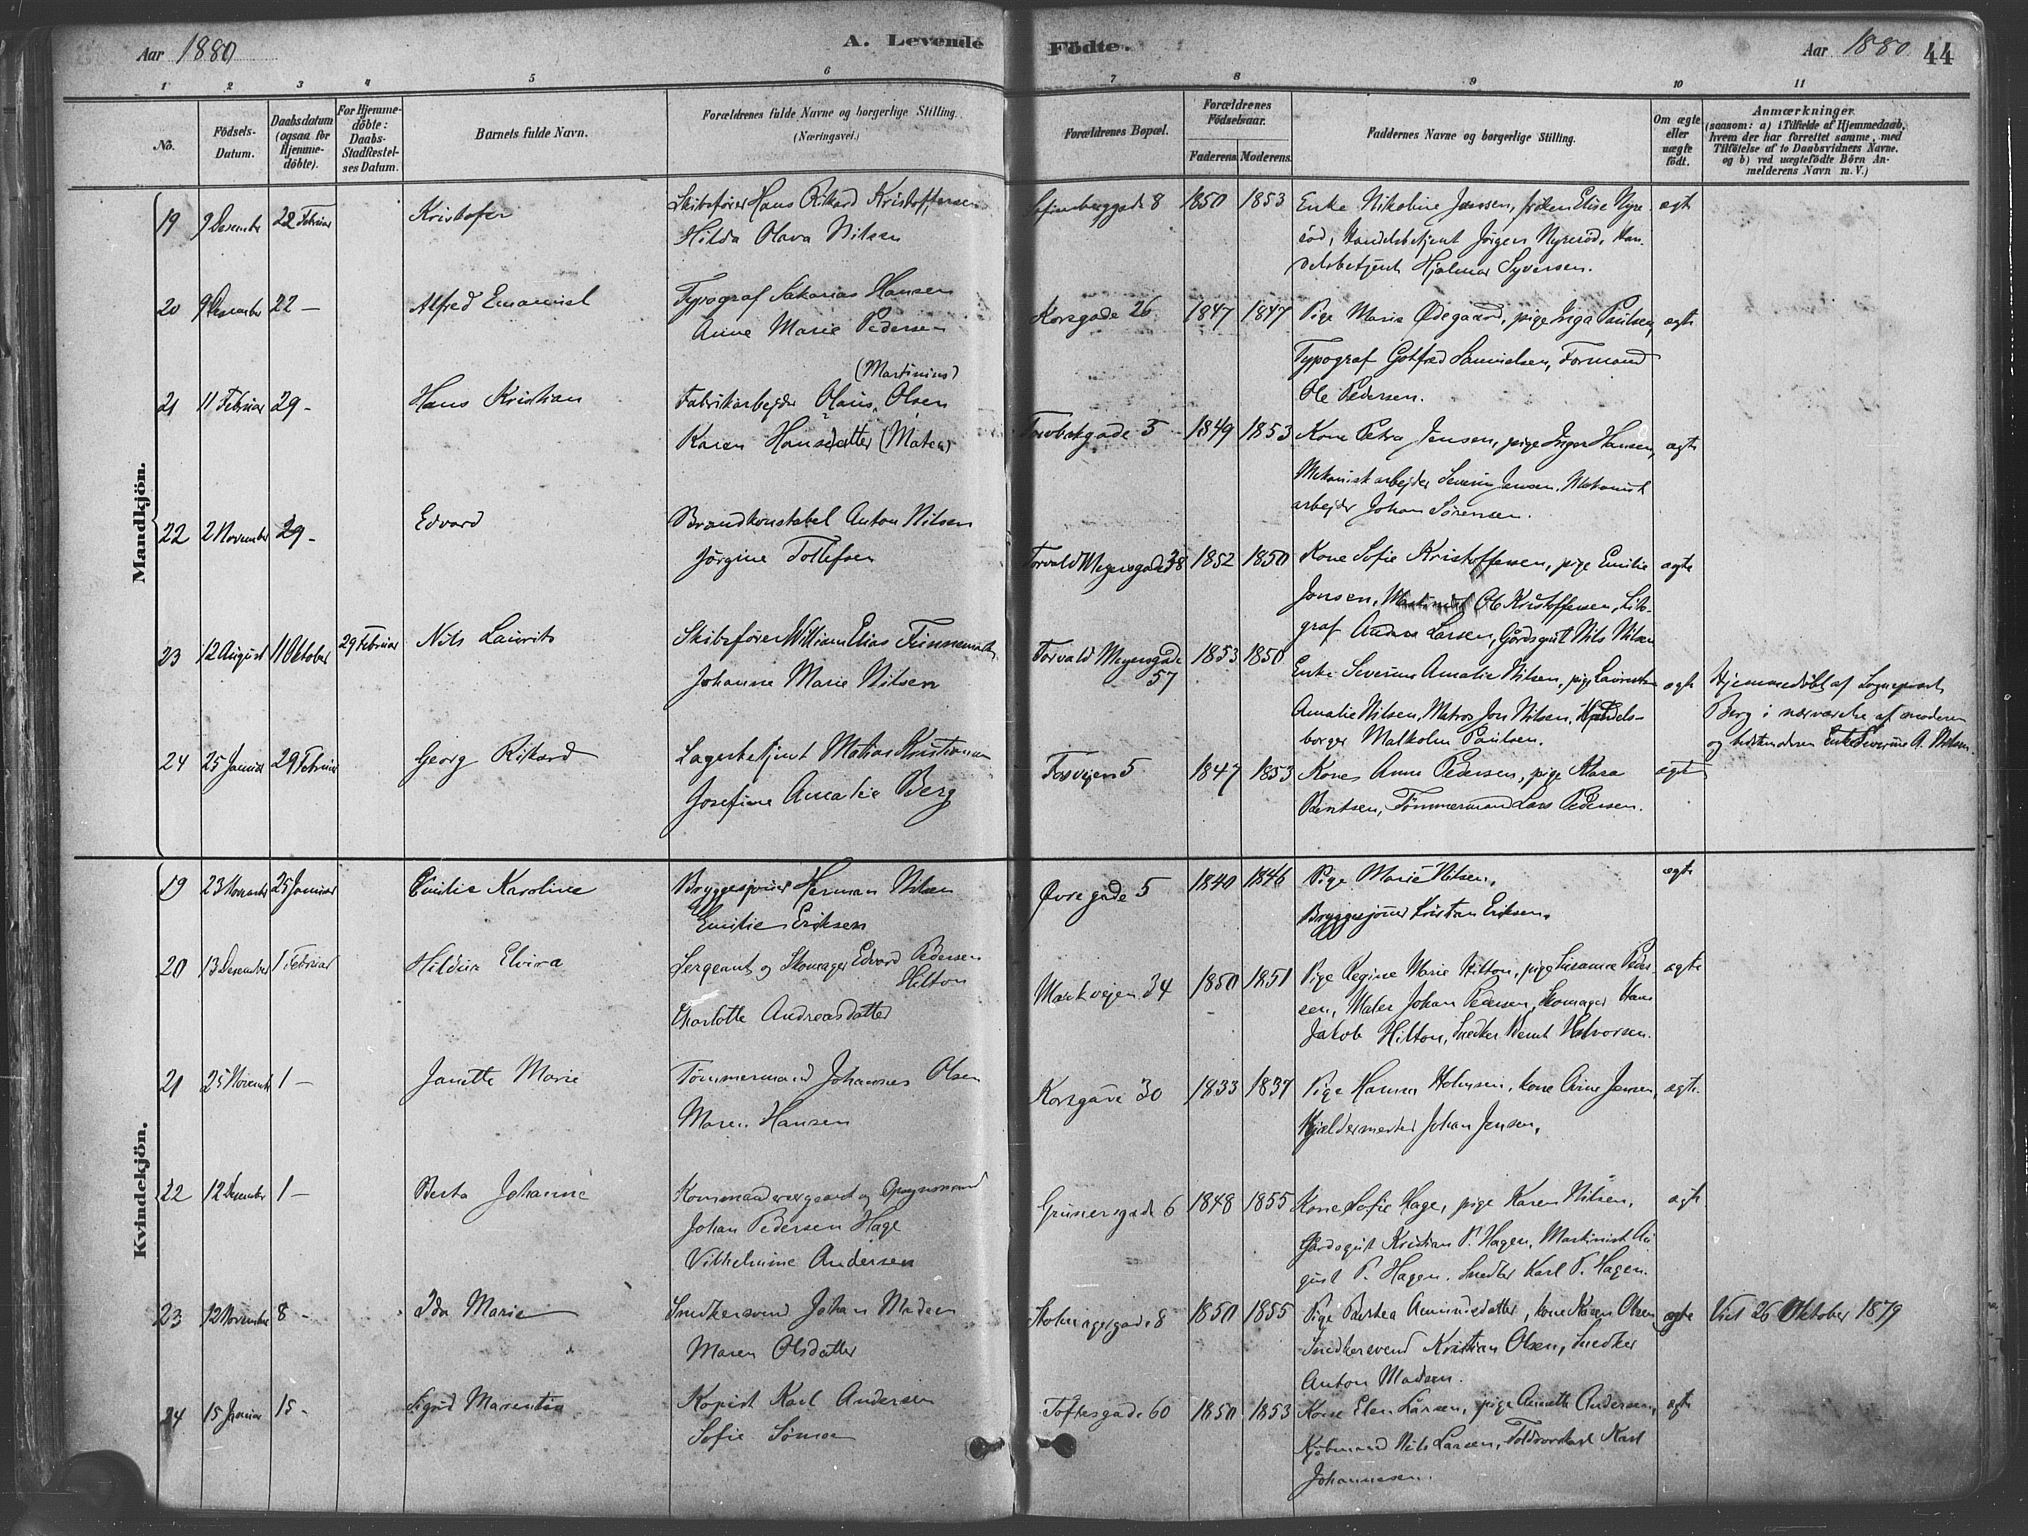 Aar 1880
A. Levende
Fødte.
Aar 1880
44
1 2 3 4 5 6 7 8 9 10 11
No.
Födsels-
Datum.
Daabsdatum
(ogsaa for
Hjemme-
döbte).
For Hjemme-
döbte:
Daabs-
Stadfæstel-
ses Datum.
Barnets fulde Navn.
Forældrenes fulde Navne og borgerlige Stilling.
(Næringsvei.)
Forældrenes Bopæl.
Forældrenes
Födselsaar.
Faderens. Moderens.
Faddernes Navne og borgerlige Stilling.
Om ægte
eller
uægte
født.
Anmærkninger.
(saasom: a) i Tilfælde af Hjemmedaab,
hvem der har forrettet samme, med
Tilföielse af to Daabsvidners Navne.
og b) ved uægtefödte Börn An-
melderens Navn m. V.)
Mandkjön.
19 9 Desember 22 Februar Kristofer Skibsfører Hans Rikard Kristoffersen Sofienberggade 8 1850 1853 Enke Nikoline Jensen, frøken Elise Nyre- ægte
Hilda Olava Nilsen
rød, Handelsbetjent Jørgen Nyrerød, Han-
delsbetjent Hjalmar Syversen.
20 9 Desember 22 — Alfred Emanuel Typograf Sakarias Hansen Korsgade 26 1847 1847 Pige Marie Ødegaard, pige Inga Paulsen, ægte
Anne Marie Pedersen
Typograf Gotfred Samuelsen, Formand
Ole Pedersen.
(Martinius)
21 11 Februar 29 - Hans Kristian Fabrikarbejder Olaus Olsen
Karen Hansdatter (Matea)
5 1849 1853 Kone Petra Jensen, pige Inger Hansen, ægte
Mekaniskarbejder Severin Jensen, Mekanisk
arbejder Johan Sørensen.
22 2 November 29 - Edvard Brandkonstabel Anton Nilsen
Jørgine Tollefsen
Torvald Meyersgade 38 1852 1850 Kone Sofie Kristoffersen, pige Emilie ægte
Jonsen, Ole Kristoffersen, Lito-
graf Anders Larsen, Gårdsgut Nils Nilsen
23 12 August 11 Oktober 29 Februar Nils Laurits Skibsfører William Elias
Johanne Marie Nilsen
Torvald Meyersgade
57
1853 1850 Enke Severine Amalie Nilsen, pige
Amalie Nilsen, Matros Jon Nilsen, Handels-
borger Malkolm Paulsen.
ægte
Hjemmedøbt af Sogneprest
Berg i nærværelse af moderen
og bedstemoderen Enke Severine A. Nilsen.
24 25 Januar 29 Februar Georg Rikard Lagerbetjent Matias Kristiansen
Josefine Amalie Berg
5 1847 1853 Kone Anne Pedersen, pige Klara ægte
Bentsen, Tømmermand Lars Pedersen.
Kvindekjön.
19 23 November 25 Januar Emilie Karoline Bryggesjouer Herman Nilsen
Emilie Eriksen
Øvregade 5 1840 1846 Pige Marie Nilsen, ægte
Bryggesjouer Kristian Eriksen.
20 13 Desember 1 Februar Hildur Elvira Sergeant og Skomager Edvard Pedersen
Hilton
Charlotte Andreasdatter
Markvejen 34 1850 1851 Pige Regine Marie Hilton, pige Susanne Peder- ægte
sen, Maler Johan Pedersen, Skomager Hans
Jakob Hilton, Snedker Bernt Halvorsen.
21 25 November 1 — Janette Marie Tømmermand Johannes Olsen
Maren Hansen
Korsgade 30 1833 1837 Pige Hanna Holmsen, kone Anne Jensen, ægte.
Kjældermester Johan Jensen.
22 12 Desember 1 — Berta Johanne Kommandersergeant og Opsynsmand
Johan Pedersen Hage
Vilhelmine Andersen
Grünersgade 6 1848 1855 Kone Sofie Hage, pige Karen Nilsen, ægte
Gårdsgut Kristian P. Hagen, Maskinist Au-
gust P. Hagen, Snedker Karl P. Hagen.
23 12 November 8 - Ida Marie Snedkersvend Johan Madsen
Maren Olsdatter
8 1850 1855 Pige Bertea Amundsdatter, kone Karen Olsen ægte Viet 26 Oktober 1879
Snedkersvend Kristian Olsen, Snedker
Anton Madsen.
24 15 Januar 15 - Sigrid Marentia Kopist Karl Andersen
Sofie
Toftesgade 60 1850 1853 Kone Elen Larsen, pige Anette Andersen, ægte
Kjøbmand Nils Larsen, Karl
Johannesen.